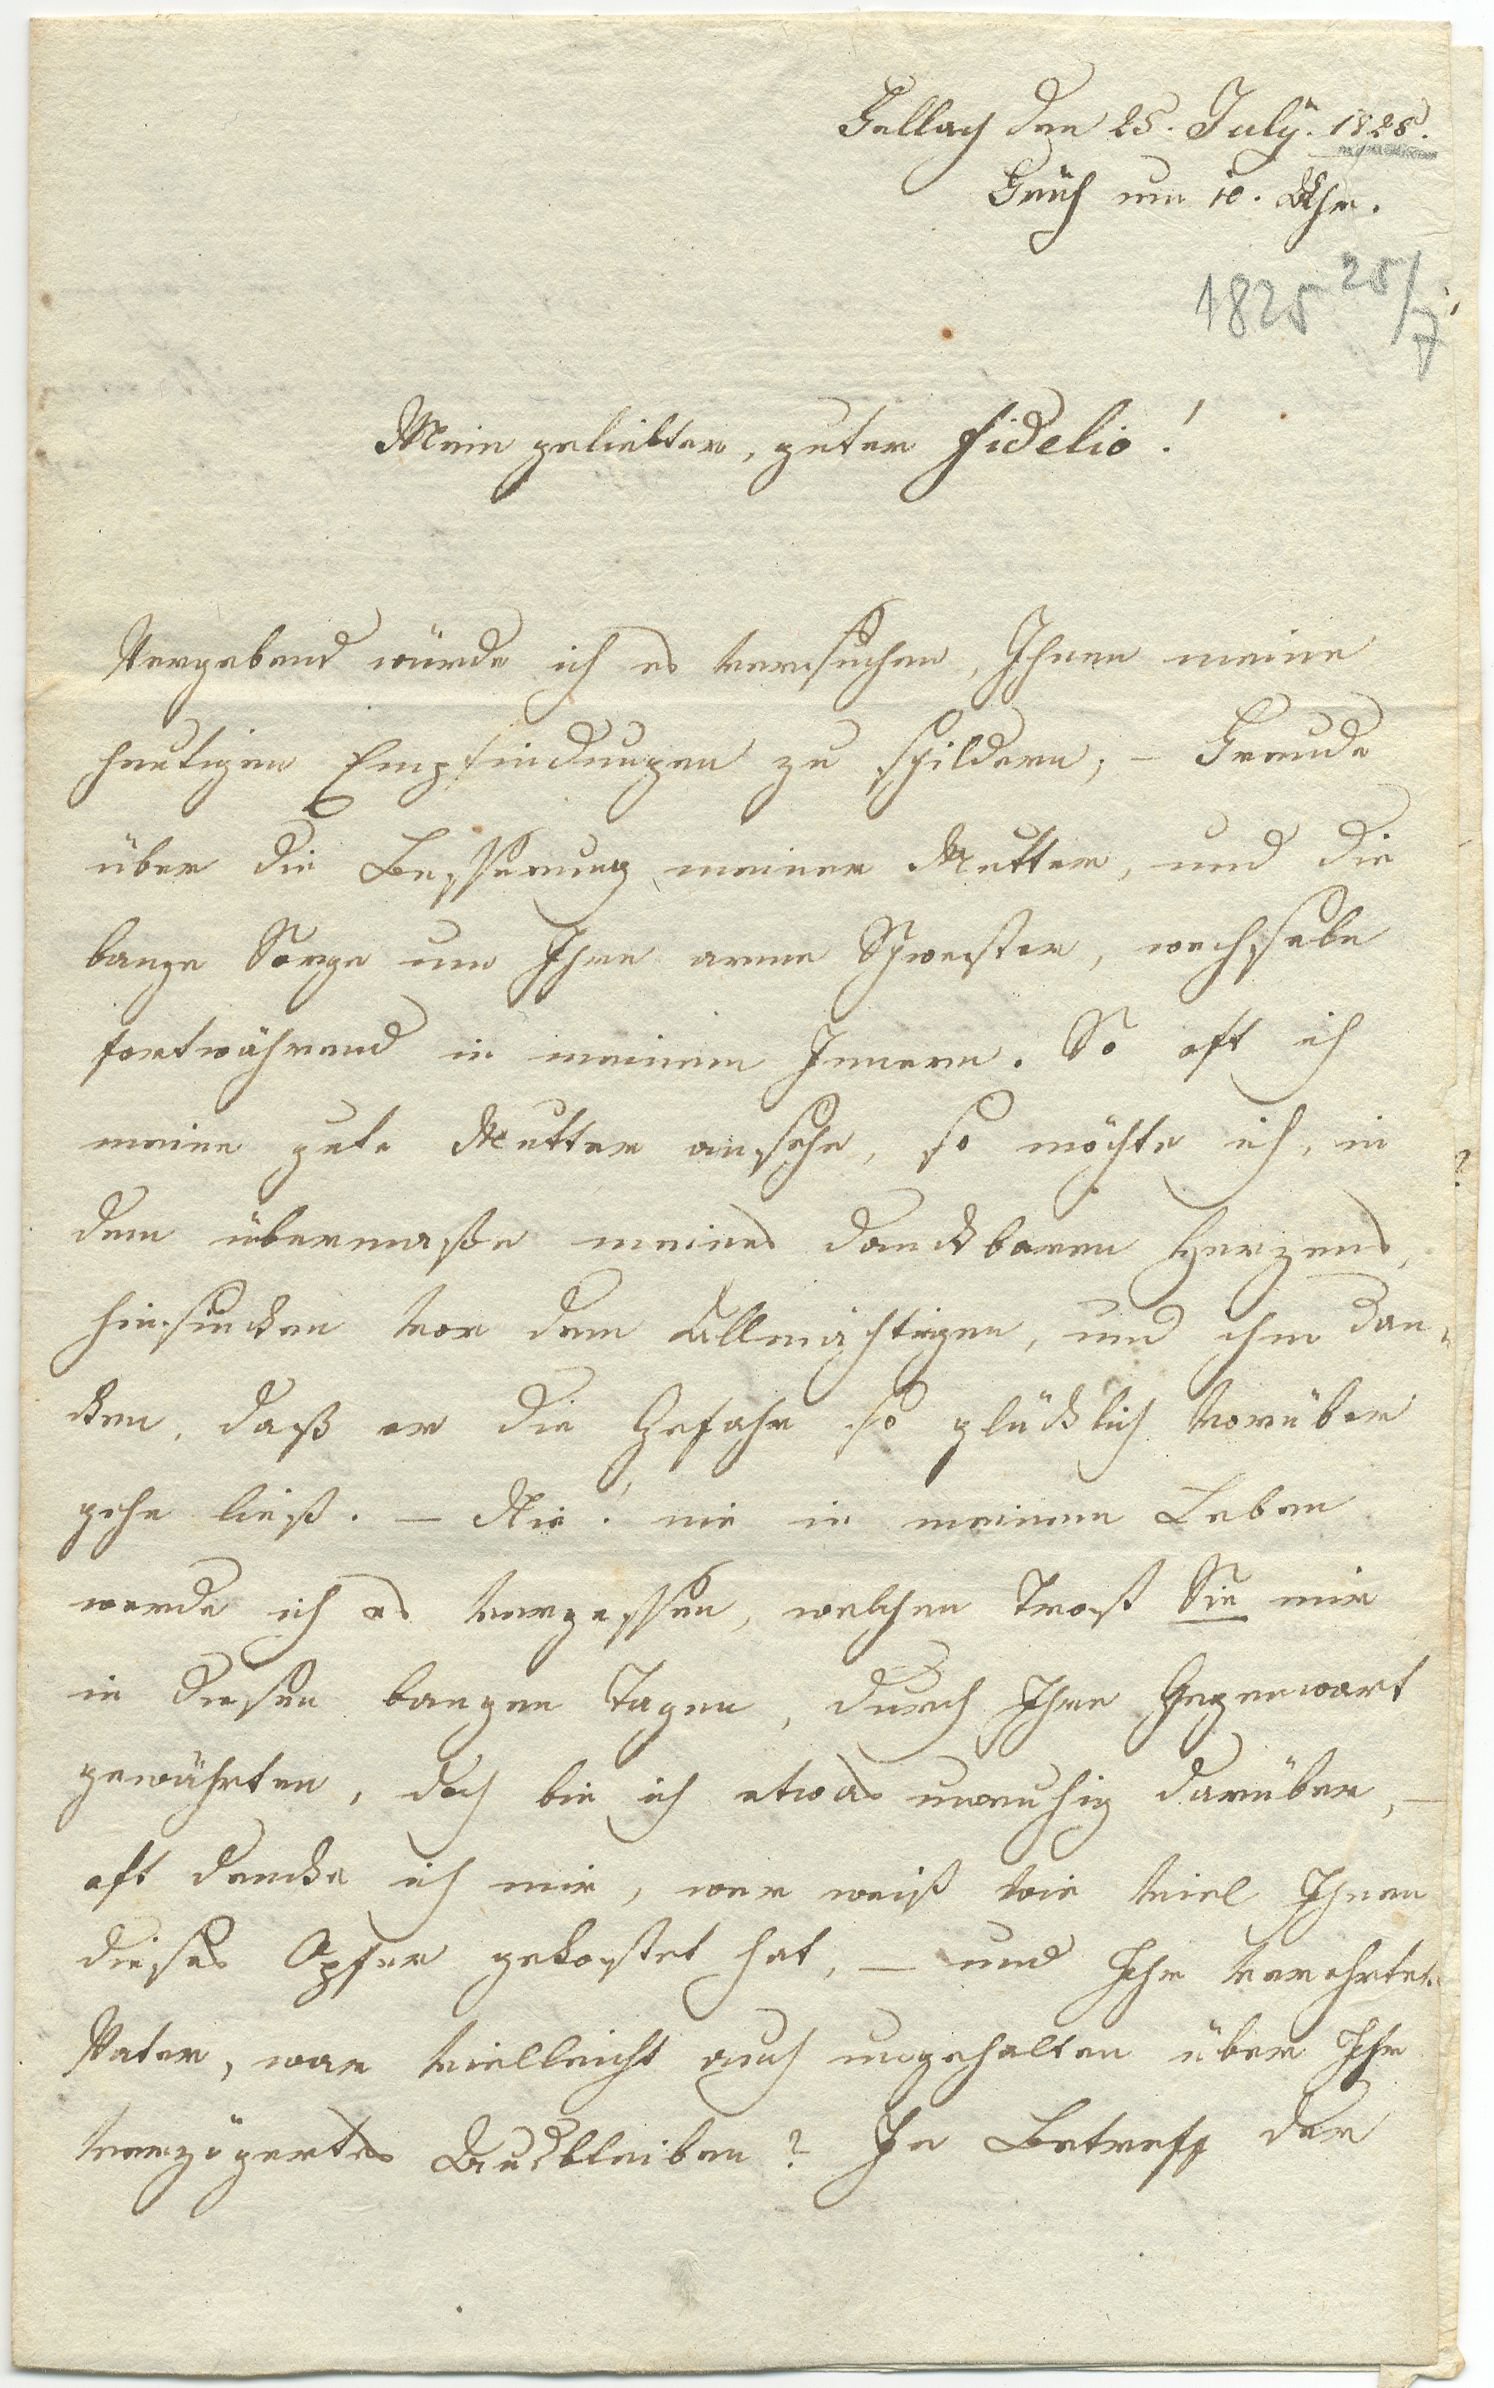 Gallach den 25. July. 1825.
Früh um 10. Uhr.
1825 25/7
Mein geliebter, guter Fidelio!
Vergebend würde ich es versuchen, Ihnen meine
heutigen Empfindungen zu schildern; – Freude
über die Besserung meiner Mutter, und die
bange Sorge um Ihre arme Schwester, wechselen
fortwährend in meinem Innern. So oft ich
meine gute Mutter ansehe, so möchte ich, in
dem übermaße meines danckbaren Herzens,
hinsincken vor dem Allmächtigen, und ihm dan-
cken, daß er die Gefahr so glücklich vorüber
gehn ließ. – Nie! nie in meinem Leben
werde ich es vergessen, welchen Trost Sie mir
in diesen bangen Tagen, durch Ihre Gegenwart
gewährten, doch bin ich etwas unruhig darüber, –
oft dencke ich mir, wer weiß wie viel Ihnen
dieses Opfer gekostet hat, – und Ihr verehrter
Vater, war vielleicht auch ungehalten über Ihr
verzögertes Ausbleiben? In Betreff der